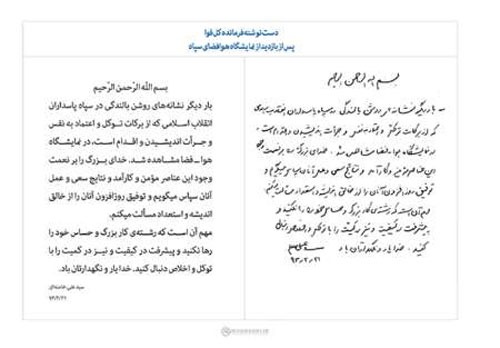 دست‌نوشته فرمانده کل قوا
پس از بازدید از نمایشگاه هوافضای سپاه
بسم الله الرّحمن الرّحیم
بار دیگر نشانه‌های روشن بالندگی در سپاه پاسداران
انقلاب اسلامی که از برکات توکل و اعتماد به نفس
و جرأت اندیشیدن و اقدام است، در نمایشگاه
هوا-فضا مشاهده شد. خدای بزرگ را بر نعمت
وجود این عناصر مؤمن و کارآمد و نتایج سعی و عمل
آنان سپاس میگویم و توفیق روزافزون آنان را از خالق
اندیشه و استعداد مسألت میکنم.
مهم آن است که رشته‌ی کار بزرگ و حساس خود را
رها نکنید و پیشرفت در کیفیت و نیز در کمیت را با
توکل و اخلاص دنبال کنید. خدا یار و نگهدارتان باد.
سید علی خامنه‌ای
۹۳/۲/۲۱
بسم الله الرحمن الرحیم
بار دیگر نشانه‌های روشن بالندگی در سپاه پاسداران انقلاب اسلامی
که از برکات توکل و اعتماد به نفس و جرأت اندیشیدن و اقدام است،
در نمایشگاه هوا-فضا مشاهده شد. خدای بزرگ را بر نعمت وجود
این عناصر مؤمن و کارآمد و نتایج سعی و عمل آنان سپاس میگویم و
توفیق روزافزون آنان را از خالق اندیشه و استعداد مسألت میکنم.
مهم آن است که رشته‌ی کار بزرگ و حساس خود را رها نکنید و
پیشرفت در کیفیت و نیز در کمیت را با توکل و اخلاص دنبال
کنید. خدا یار و نگهدارتان باد.
۹۳/۲/۲۱